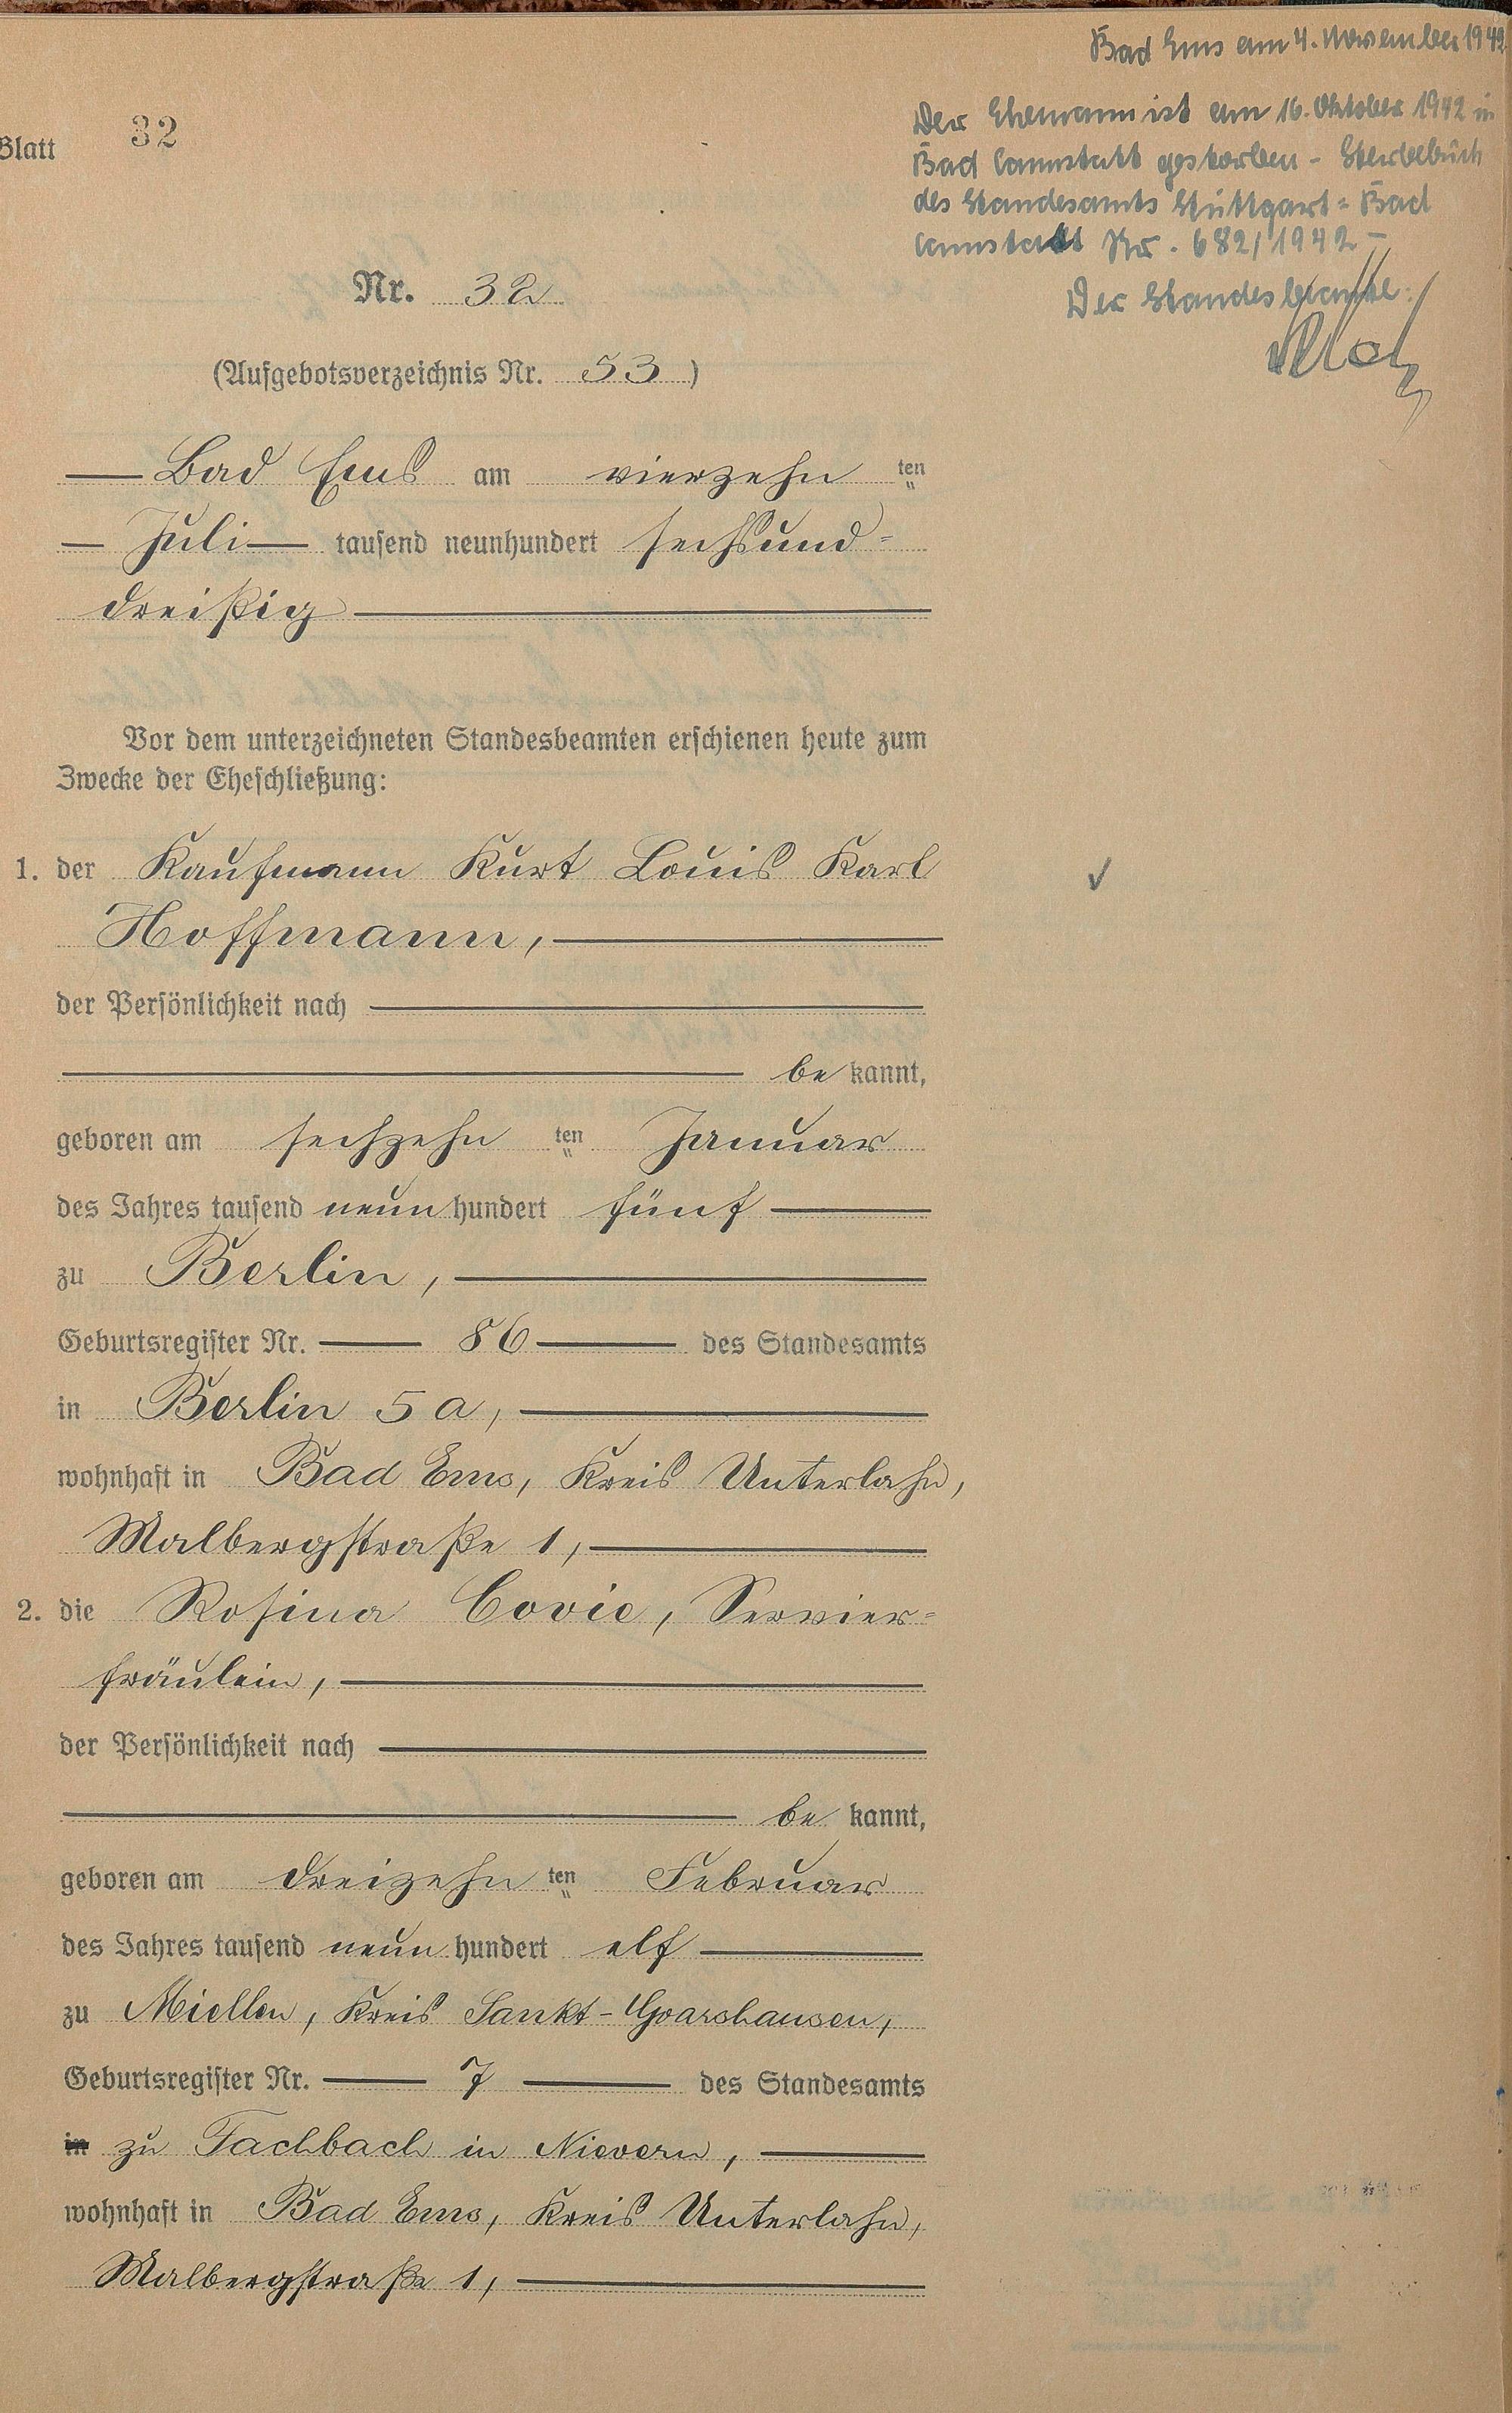 Bad Ems am 4. November 1942
Der Ehemann ist am 16. Oktober 1942 in
Bad Cannstatt gestorben - Sterbebuch
des Standesamts Stuttgart = Bad
Cannstatt Nr. 682/1942 -
Der Standesbeamte:
Blatt 32
Nr. 32
(Aufgebotsverzeichnis Nr. 53)
Bad Ems am vierzehn ten
Juli tausend neunhundert sechsund=
dreißig
Vor dem unterzeichneten Standesbeamten erschienen heute zum
Zwecke der Eheschließung:
1. der Kaufmann Kurt Louis Karl
Hoffmann,
der Persönlichkeit nach
be kannt,
geboren am sechzehn ten Januar
des Jahres tausend neun hundert fünf
zu Berlin,
Geburtsregister Nr. 86 des Standesamts
in Berlin 5a,
wohnhaft in Bad Ems, Kreis Unterlahn,
Malbergstraße 1,
2. die Rosina Covic, Servier=
fräulein,
der Persönlichkeit nach
be kannt,
geboren am dreizehn ten Februar
des Jahres tausend neun hundert elf
zu Miellen, Kreis Sankt-Goarshausen,
Geburtsregister Nr. 7 des Standesamts
in zu Fachbach in Nievern,
wohnhaft in Bad Ems, Kreis Unterlahn,
Malbergstraße 1,